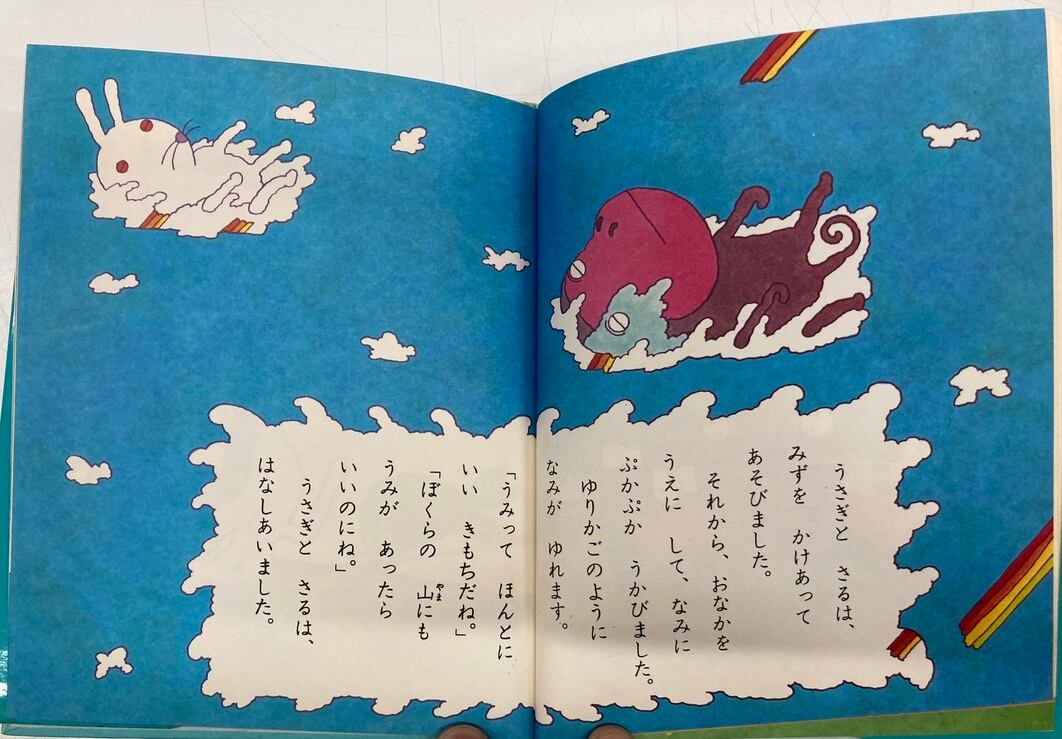 うさぎと さるは、
みずを かけあって
あそびました。
それから、おなかを
うえに して、なみに
ぷかぷか うかびました。
ゆりかごのように
なみが ゆれます。
「うみって ほんとに
いい きもちだね。」
「ぼくらの 山にも
うみが あったら
いいのにね。」
うさぎと さるは、
はなしあいました。